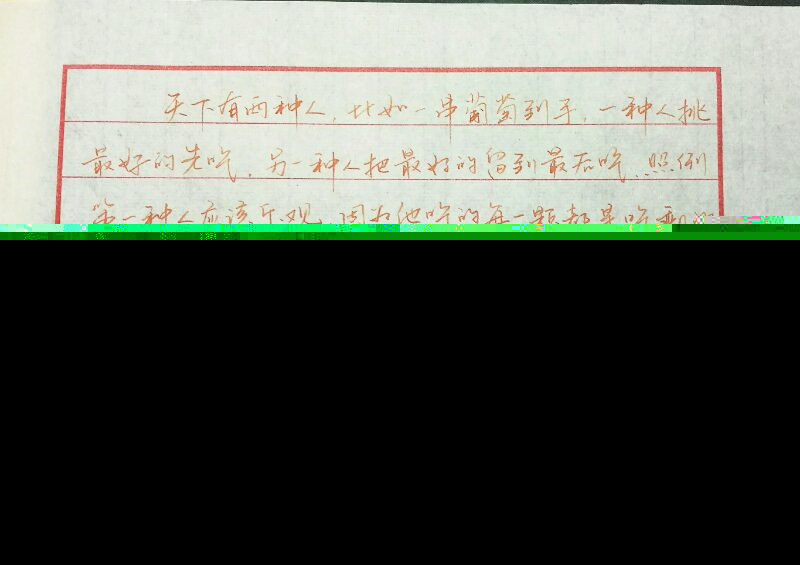 天下有两种人，比如一串葡萄到手，一种人挑
最好的先吃，另一种人把最好的留到最后吃，照例
第一种人应该乐观，因为他吃的每一颗都是吃剩